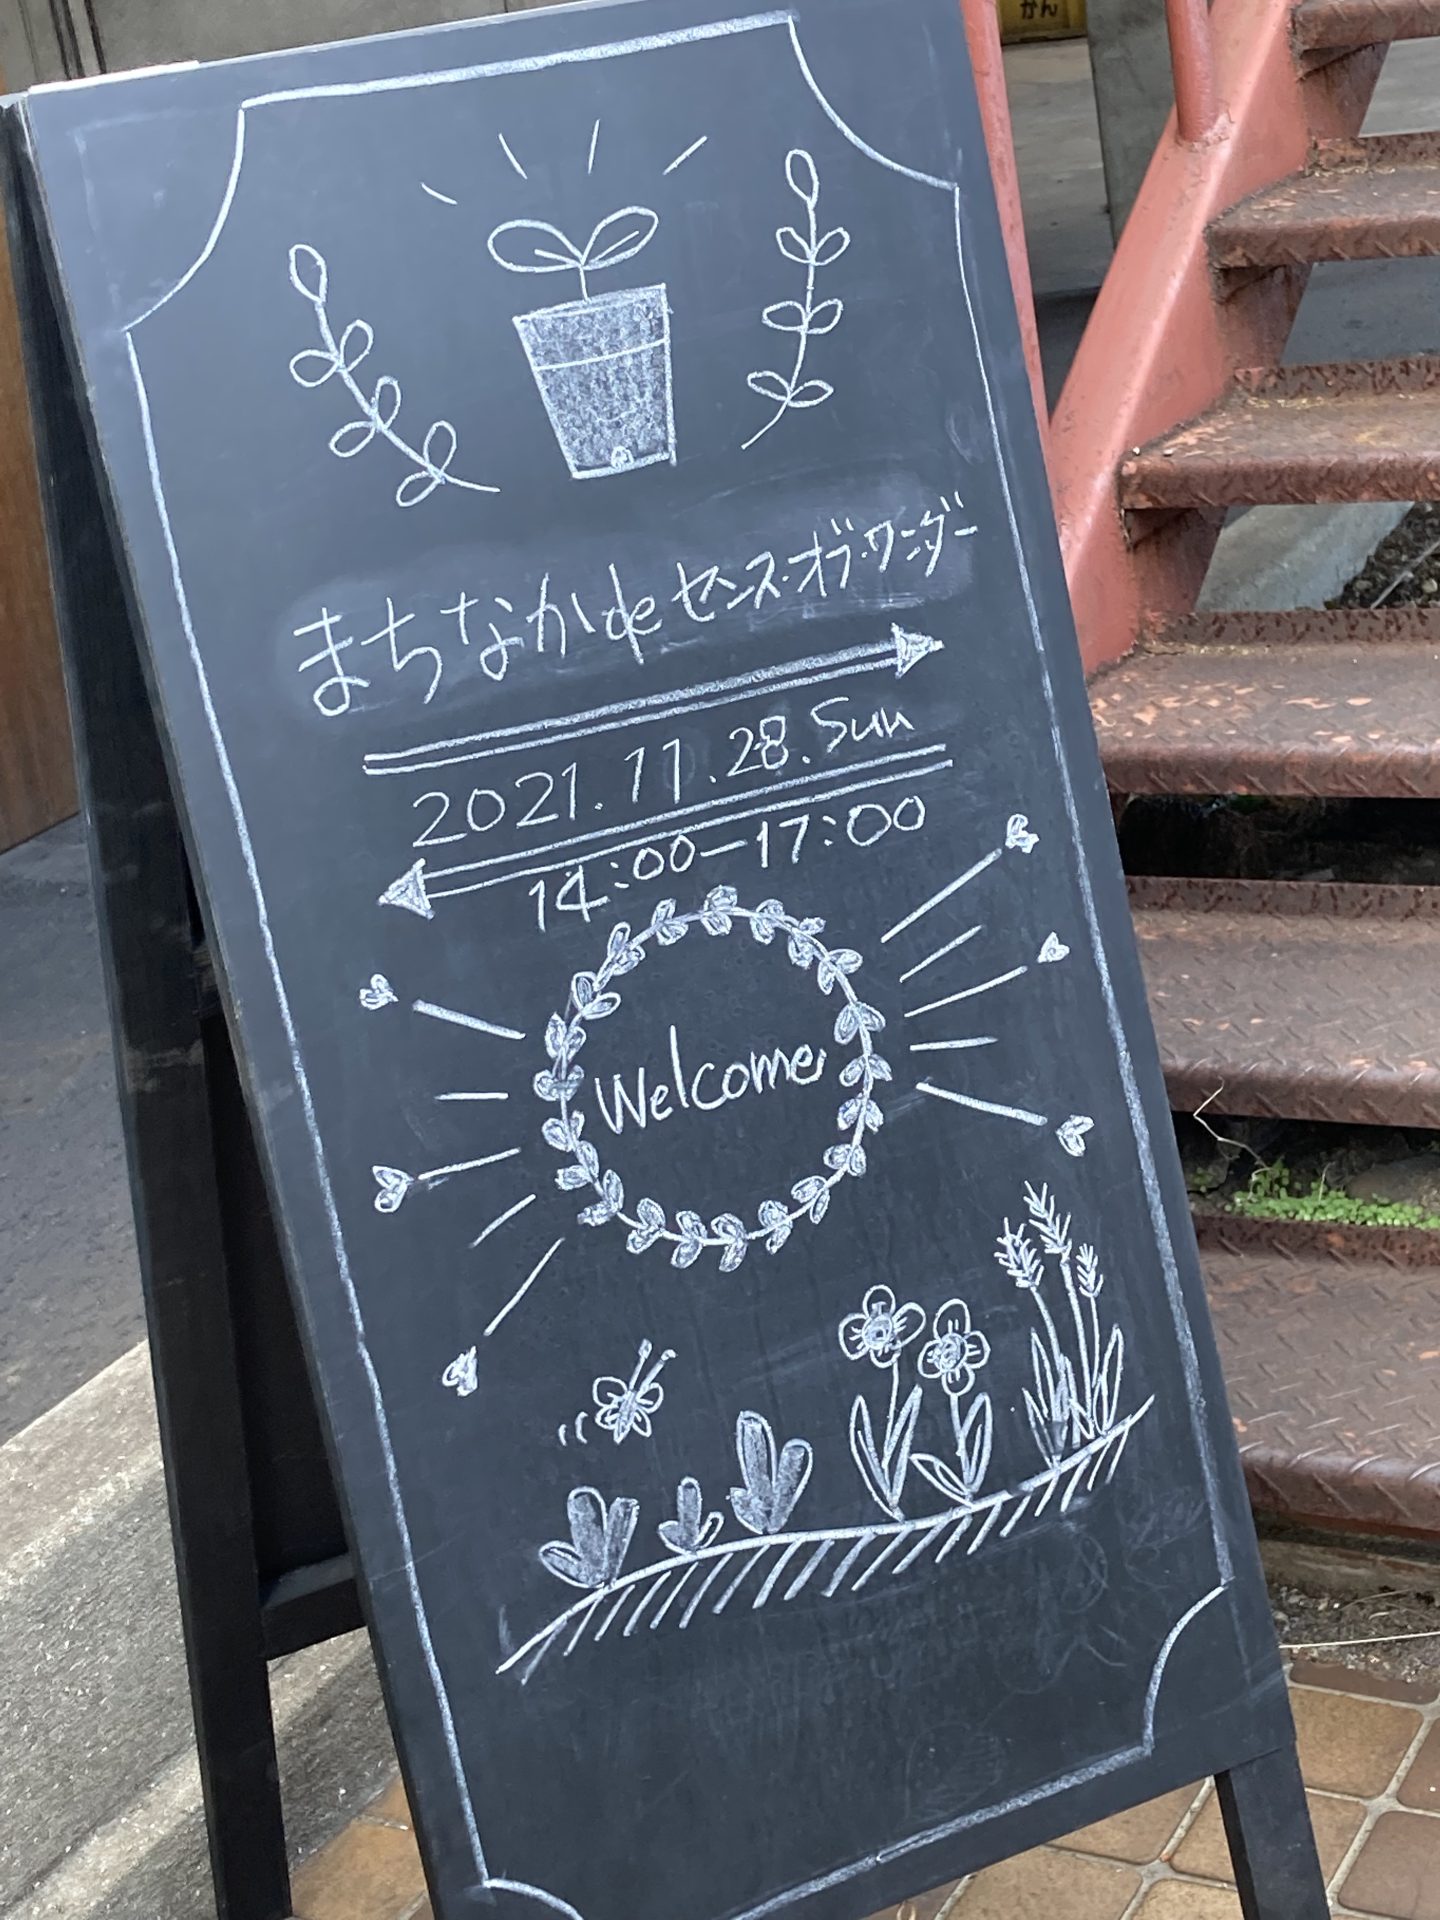 かん
まちなかdeセンス・オブ・ワンダー
2021.11.28.Sun
14:00－17:00
Welcome